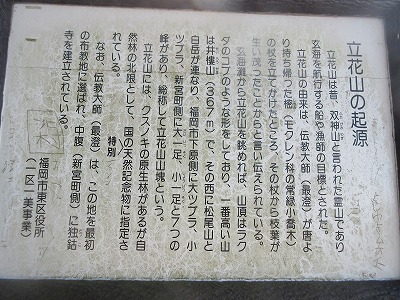 立花山の起源
立花山は昔、双神山と言われた霊山であり
玄海を航行する船や漁師の目標とされた。
立花山の由来は、伝教大師(最澄)が唐よ
り持ち帰った樒(モクレン科の常緑小喬木)
の杖を立てかけたところ、その杖から枝葉が
生い茂ったことからと言い伝えられている。
玄海灘から立花山を眺めれば、山頂はラク
ダのコブのような形をしており、一番高い山
は井楼山(367m)で、その西に松尾山と
白岳が連なり、福岡市下原側に大ツブラ、小
ツブラ、新宮町側に大一足、小一足と7つの
峰があり、総称して立花山山塊という。
立花山には、クスノキの原生林があるが自
然林の北限として、国の特別天然記念物に指定さ
れている。
なお、伝教大師(最澄)は、この地を最初
の布教地に選ばれ、中腹(新宮町側)に独鈷
寺を建立されている。
福岡市東区役所
(一区一美事業)